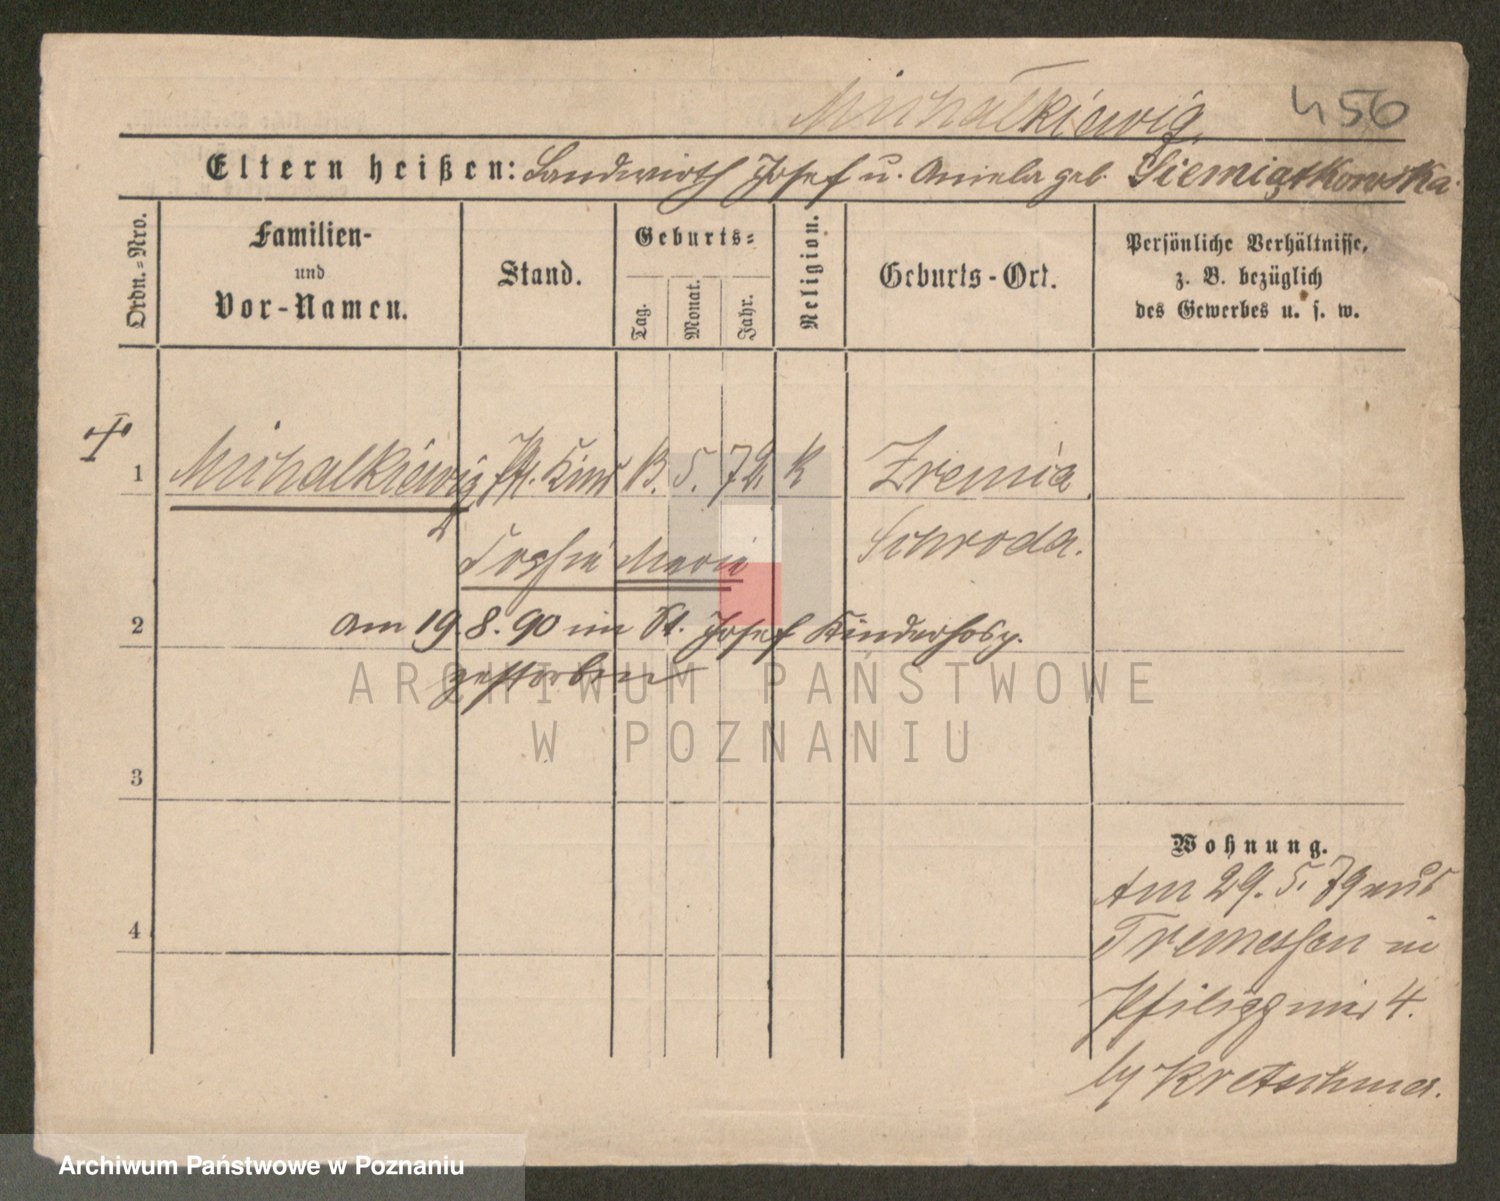 Michalkiewicz
456
Eltern heißen: Landwirth Josef u. Aniela geb. Siemiątkowska.
Ordn.-Nro.
Familien- und Vor-Namen.
Stand.
Geburts-
Tag.
Monat.
Jahr.
Religion.
Geburts-Ort.
Persönliche Verhältnisse, z. B. bezüglich des Gewerbes u. s. w.
1 Michalkiewicz Kind 13. 5. 72. K Zremia
Schroda.
Sophie Marie
2 am 19. 8. 90 im St. Josef Kinderhosp.
gestorben
3
Wohnung.
Am 29. 5. 79 aus
4
Tremessen in
4.
by Kretschmer.
ARCHIWUM PAŃSTWOWE
W POZNANIU
Archiwum Państwowe w Poznaniu